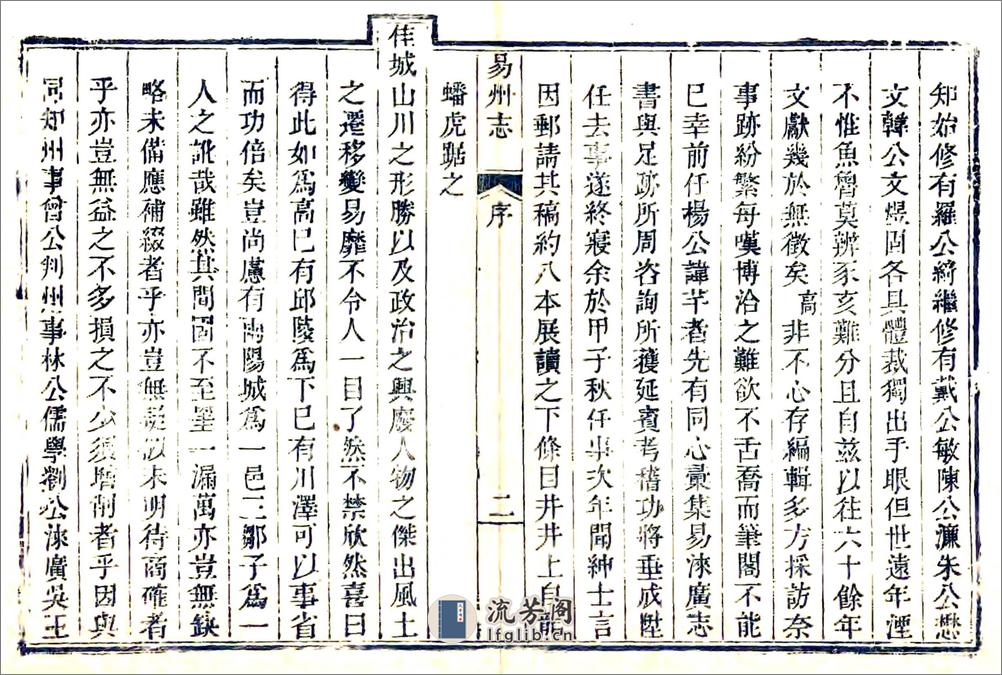 知始修有羅公綺繼修有戴公敏陳公濂朱公懋
文韓公文煜固各具體裁獨出手眼但世遠年湮
不惟魚魯莫辨豕亥難分且自兹以往六十餘年
文獻幾於無徵矣高非不心存編輯多方採訪奈
事跡紛繁每嘆博洽之難欲不舌喬而筆閣不能
已幸前任楊公諱芊者先有同心彙集易淶廣志
書與足跡所周咨詢所獲延賓考稽功將垂成陞
任去事遂終寢余於甲子秋任事次年聞紳士言
因郵請其稿約八本展讀之下條目井井上自龍
易州志
序
二
蟠虎踞之
佳城山川之形勝以及政治之興廢人物之傑出風土
之遷移變易靡不令人一目了然不禁欣然喜曰
得此如為高已有邱陵為下已有川澤可以事省
而功倍矣豈尚慮有兩陽城為一邑三鄒子為一
人之訛哉雖然其間固不至墨一漏萬亦豈無缺
略未備應補綴者乎亦豈無疑似未明待商確者
乎亦豈無益之不多損之不少須磨削者乎因與
同知州事曾公判州事林公儒學劉公淶廣吳王
流芳阁
lfglib.cn